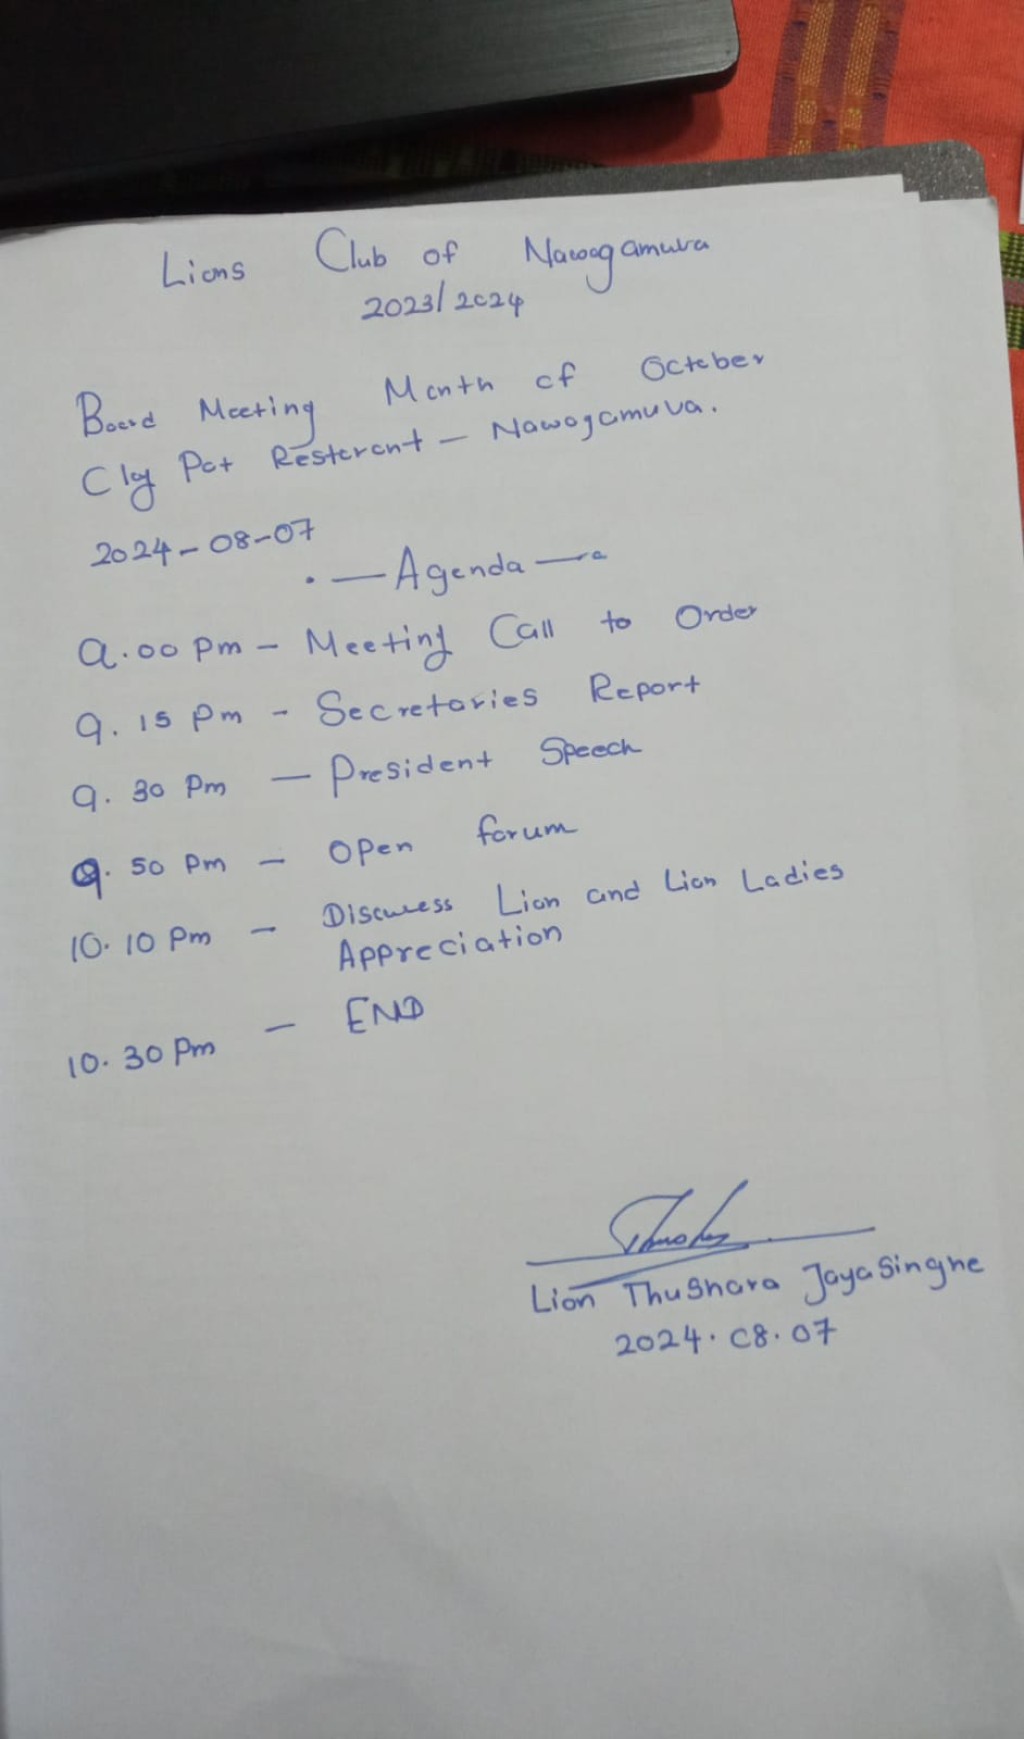 Lions Club of Nawogamuva
2023/2024
Board Meeting Month of October
Cly Pot Resterant - Nawogamuva.
2024-08-07
Agenda
9.00 pm - Meeting Call to Order
9.15 pm - Secretories Report
9.30 Pm - President Speech
9.50 Pm - Open forum
10.10 Pm - Discuess Lion and Lion Ladies
Appreciation
10.30 Pm - END
Lion Thushara Jayasinghe
2024.08.07